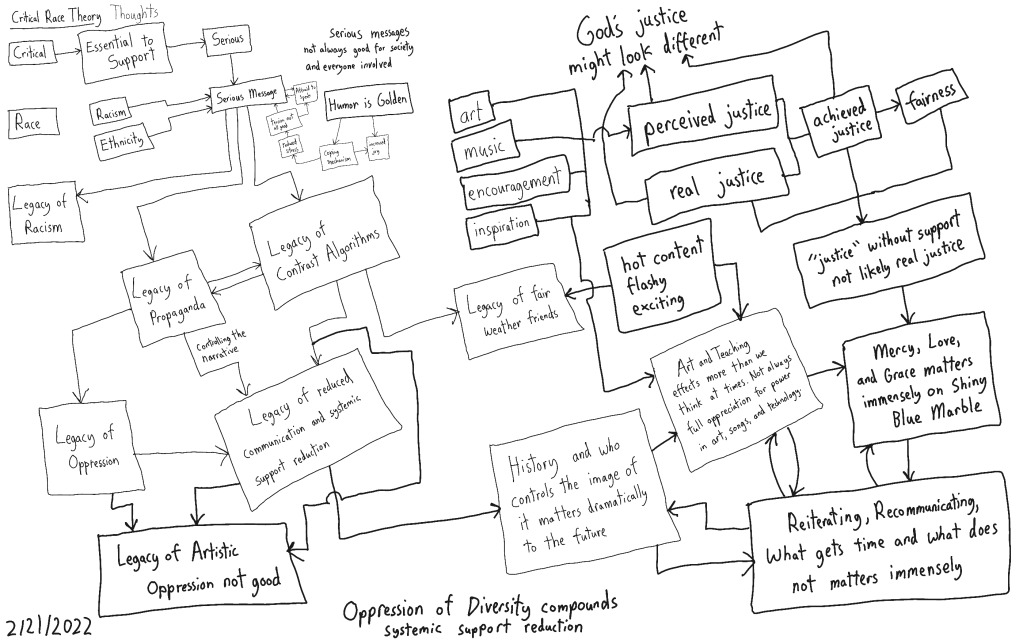 Critical Race Theory Thoughts
Critical
Essential to
Support
Serious
Serious messages
not always good for society
and everyone involved
God's justice
might look different
Serious Message
Humor is Golden
Race
Racism
Ethnicity
reduced
stress
Coping
mechanism
Legacy of
Racism
art
music
encouragement
inspiration
perceived justice
real justice
achieved
justice
fairness
Legacy of
Contrast Algorithms
Legacy of
Propaganda
controlling the
narrative
Legacy of fair
weather friends
hot content
flashy
exciting
"justice" without support
not likely real justice
Art and Teaching
effects more than we
think at times. Not always
full appreciation for power
in art, songs, and technology.
Mercy, Love,
and Grace matters
immensely on Shiny
Blue Marble
Legacy of
Oppression
Legacy of reduced
communication and systemic
support reduction
History and who
controls the image of
it matters dramatically
to the future
Reiterating, Recommunicating,
What gets time and what does
not matters immensely
Legacy of Artistic
Oppression not good
Oppression of Diversity compounds
systemic support reduction
2/21/2022